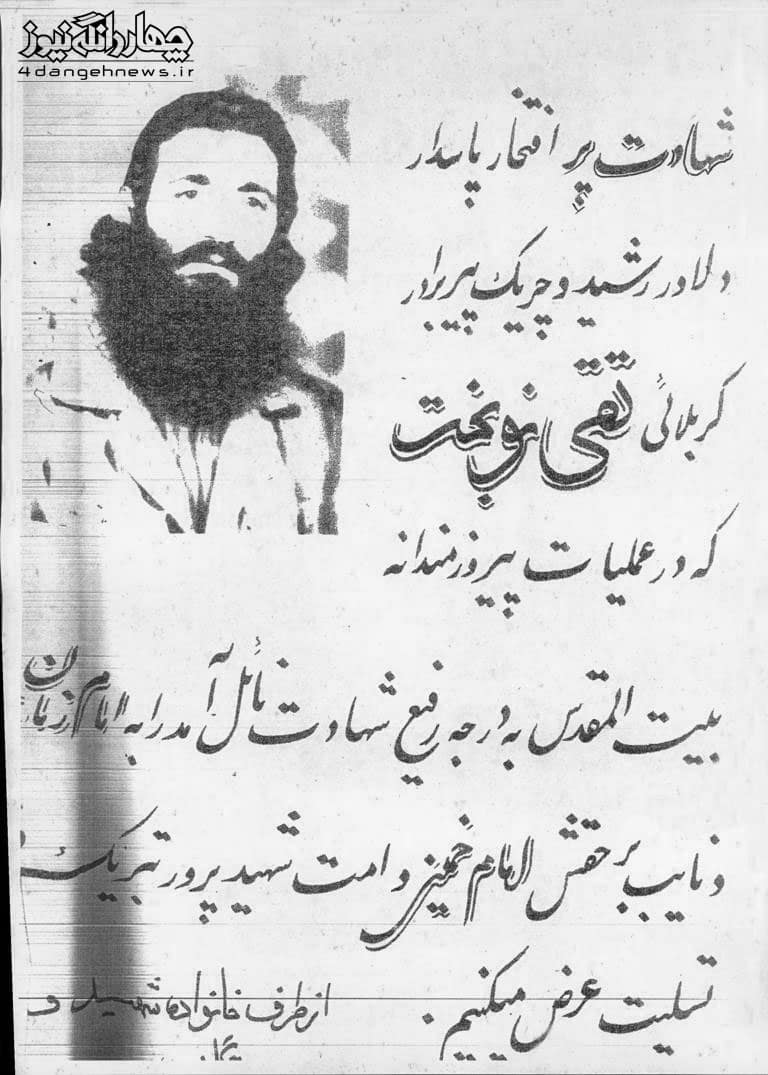 چهاردانگه نیوز
4dangehnews.ir
شهادت پر افتخار پاسدار
دلاور رشید و چریک پیر برادر
کربلائی تقی نوبخت
که در عملیات پیروزمندانه
بیت المقدس به درجه رفیع شهادت نائل آمد را به امام زمان
و نایب بر حقش امام خمینی و امت شهید پرور تبریک
تسلیت عرض میکنیم.
از طرف خانواده شهید و